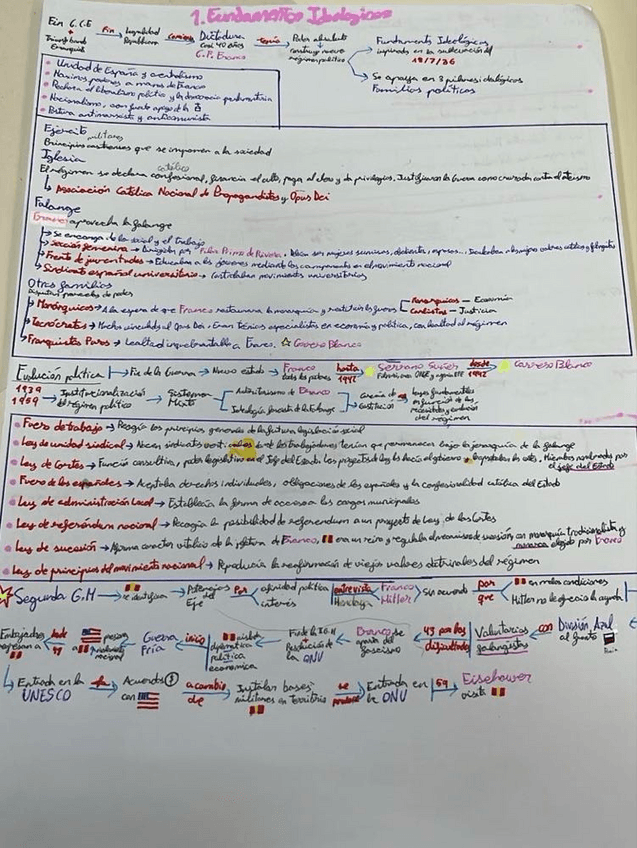 1. Fundamentos Ideológicos
Fin G.C.E + Triunfo bando Franquista Fin Legalidad Republicana comienza Dictadura casi 40 años G.F. Franco Poder absoluto construye nuevo régimen político
Fundamentos Ideológicos inspirados en la sublevación del 18/7/36
Se apoya en 3 pilares ideológicos
Familias políticas
• Unidad de España y centralismo
• Máximos poderes a manos de Franco
• Rechazo al liberalismo político y la democracia parlamentaria
• Nacionalismo, con fuerte apoyo de la
• Postura antimarxista y anticomunista
Ejército militares
Principios castrenses que se imponen a la sociedad
Iglesia católica
El régimen se declara confesional, financia el culto, paga al clero y da privilegios. Justificaron la Guerra como cruzada contra el ateísmo
↳ Asociación Católica Nacional de Propagandistas y Opus Dei
Falange
Franco aprovecha la falange
→ Se encarga de lo social y el trabajo
→ Sección femenina → Dirigida por Pilar Primo de Rivera. Debían ser mujeres sumisas, obedientes, esposas...
→ Frente de juventudes → Educaban a los jóvenes mediante los campamentos en el movimiento nacional
→ Sindicato español universitario → Controlaban movimientos universitarios
Otras familias
→ Monárquicos → A la espera de que Franco restaurara la monarquía
Monárquicos — Economía
Carlistas — Justicia
→ Tecnócratas → Muchos vinculados al Opus Dei → Eran técnicos especialistas en economía y política, con lealtad al régimen
→ Franquistas Puros → Lealtad inquebrantable a Franco. ☆ Carrero Blanco
Evolución política → Fin de la Guerra → Nuevo estado → Franco todos los poderes hasta 1942 Serrano Suñer desde 1942 Carrero Blanco
1939 1959 → Institucionalización del régimen político → Sistema Mixto
Autoritarismo de Franco
Ideología fascista de la Falange
Carencia de Constitución → leyes fundamentales en función de las necesidades y evolución del régimen
• Fuero de trabajo → Recogía los principios generales de la futura legislación social
• Ley de unidad sindical → Nacen sindicatos verticales donde los trabajadores tenían que permanecer bajo la jerarquía de la falange
• Ley de Cortes → Función consultiva, poder legislativo en el Jefe del Estado. Los proyectos de ley los hacía el gobierno y los aprobaban las cortes. Miembros nombrados por el jefe del Estado
• Fuero de los españoles → Aceptaba derechos individuales, obligaciones de los españoles y la confesionalidad católica del Estado
• Ley de administración local → Establecía la forma de acceso a los cargos municipales
• Ley de referéndum nacional → Recogía la posibilidad de referendum a un proyecto de Ley de las Cortes
• Ley de sucesión → Afirma carácter vitalicio de la jefatura de Franco, era un reino y regulaba el mecanismo de sucesión en monarquía tradicionalista y monarca elegido por Franco
• Ley de principios del movimiento nacional → Reproducía la reafirmación de viejos valores doctrinales del régimen
☆ Segunda G.M → se identifica → Potencias del Eje Por afinidad política intereses entrevista Hendaya Franco Hitler Sin acuerdo por que en malas condiciones Hitler no le ofrecía la ayuda
Embajadas regresan a desde Guerra Fría inicio aislada diplomática política económica Fin de la II G.M fundación de la ONU Franco se aparta del fascismo 43 por las dificultades Voluntarios falangistas con División Azul al frente
↳ Entrada en UNESCO Acuerdos con a cambio de Instalar bases militares en territorio se produce Entrada en la ONU 59 Eisehower visita